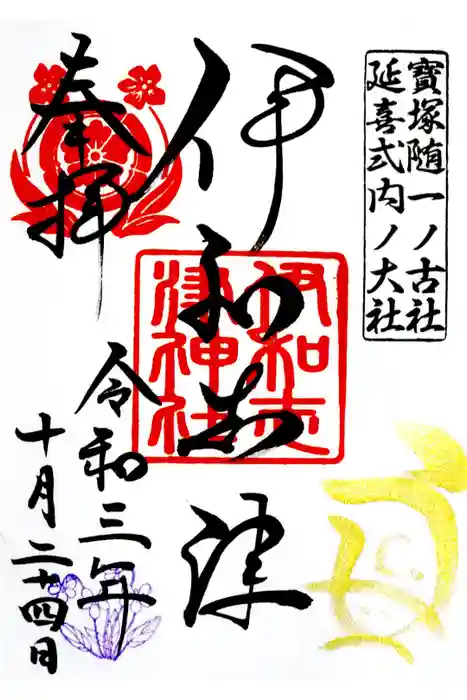 寶塚随一ノ古社
延喜式内ノ大社
伊和志津
伊和志
津神社
奉拝
令和三年
十月二十四日